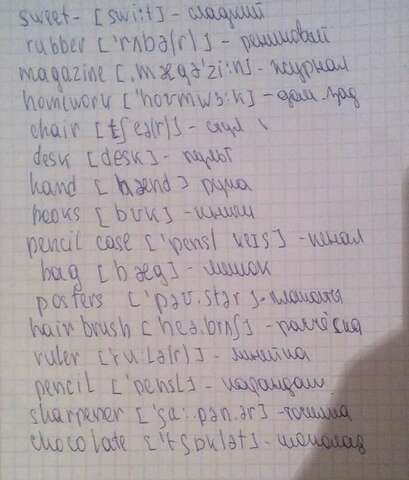 sweet - [swi:t] - сладкий
rubber ['rʌbə(r)] - резиновый
magazine [,mægə'zi:n] - журнал
homework ['hoʊmwɜ:k] - дом. зад
chair [tʃeə(r)] - стул
desk [desk] - пульт
hand [hænd] рука
books [bʊk] - книги
pencil case ['pensl keis] - пенал
bag [bæg] - мешок
posters ['pəʊ.stər] - плакаты
hair brush ['heə.brʌʃ] - расчёска
ruler [ru:lə(r)] - линейка
pencil ['pensl] - карандаш
sharpener ['ʃɑ:pən.ər] - точилка
chocolate ['tʃɒklət] - шоколад